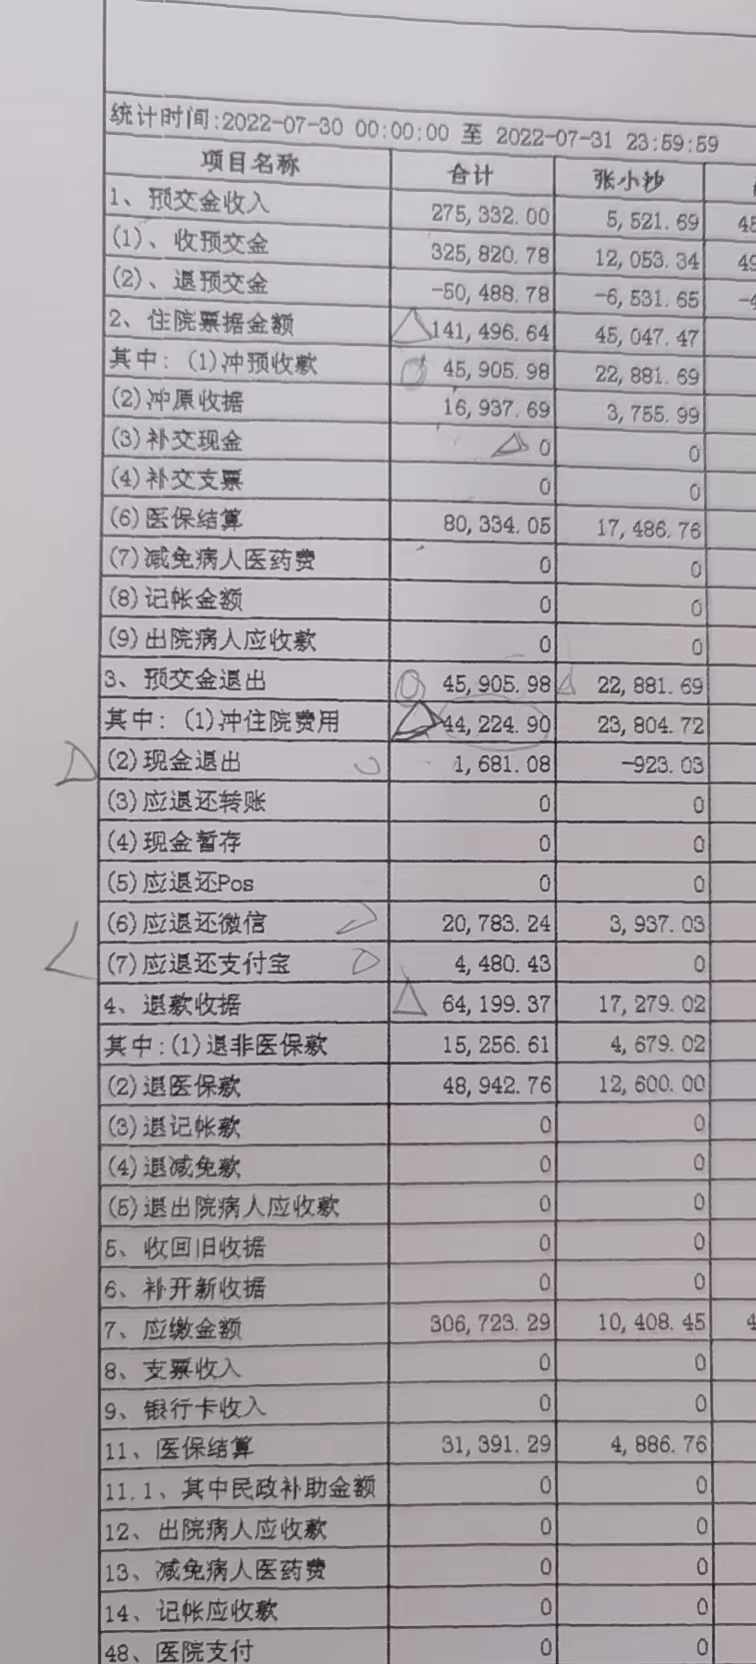 统计时间:2022-07-30 00:00:00 至 2022-07-31 23:59:59
项目名称 合计 张小钞
1、预交金收入 275,332.00 5,521.69 48
(1)、收预交金 325,820.78 12,053.34 49
(2)、退预交金 -50,488.78 -6,531.65 -4
2、住院票据金额 141,496.64 45,047.47
其中: (1)冲预收款 45,905.98 22,881.69
(2)冲原收据 16,937.69 3,755.99
(3)补交现金 0 0
(4)补交支票 0 0
(6)医保结算 80,334.05 17,486.76
(7)减免病人医药费 0 0
(8)记帐金额 0 0
(9)出院病人应收款 0 0
3、预交金退出 45,905.98 22,881.69
其中: (1)冲住院费用 44,224.90 23,804.72
(2)现金退出 1,681.08 -923.03
(3)应退还转账 0 0
(4)现金暂存 0 0
(5)应退还Pos 0 0
(6)应退还微信 20,783.24 3,937.03
(7)应退还支付宝 4,480.43 0
4、退款收据 64,199.37 17,279.02
其中:(1)退非医保款 15,256.61 4,679.02
(2)退医保款 48,942.76 12,600.00
(3)退记帐款 0 0
(4)退减免款 0 0
(5)退出院病人应收款 0 0
5、收回旧收据 0 0
6、补开新收据 0 0
7、应缴金额 306,723.29 10,408.45 4
8、支票收入 0 0
9、银行卡收入 0 0
11、医保结算 31,391.29 4,886.76
11.1、其中民政补助金额 0 0
12、出院病人应收款 0 0
13、减免病人医药费 0 0
14、记帐应收款 0 0
48、医院支付 0 0